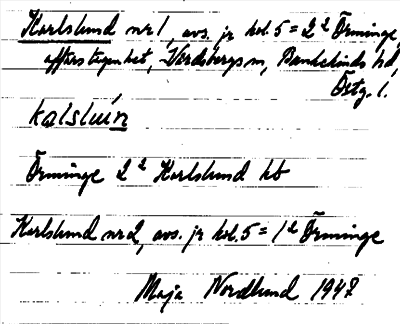 Karlslund nr 1, avs. jr kol. 5 = 2² Örminge,
afförs tegenhet, Vårdsbergs sn, Bankekinds hd,
Östg. l.
kalsluǹn
Örminge 2² Karlslund hb
Karlslund nr 2, avs. jr kol. 5 = 1² Örminge
Maja Nordlund 1947